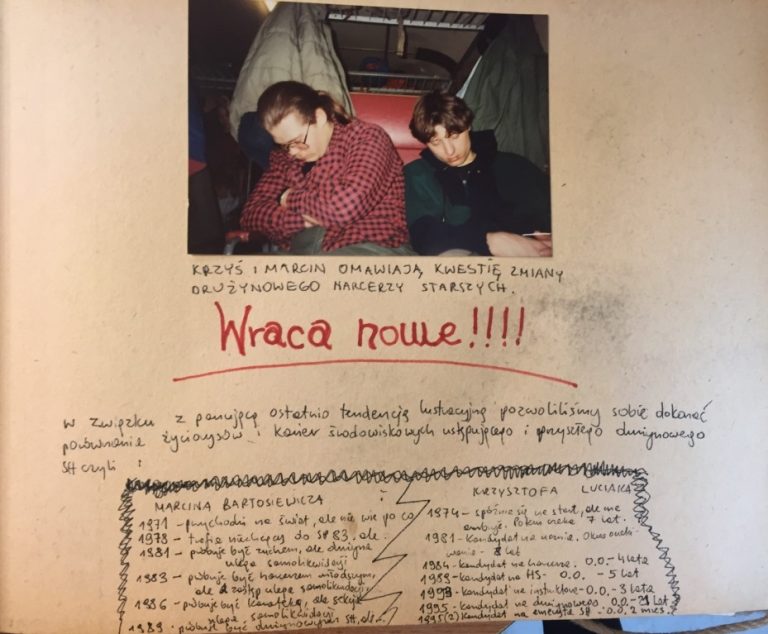 KRZYŚ I MARCIN OMAWIAJĄ KWESTIĘ ZMIANY
DRUŻYNOWEGO HARCERZY STARSZYCH.
Wraca nowe!!!!
W związku z panującą ostatnio tendencją lustracyjną pozwoliliśmy sobie dokonać
porównania życiorysów i karier środowiskowych ustępującego i przyszłego drużynowego
SH czyli :
MARCINA BARTOSIEWICZA
1971 - przychodzi na świat, ale nie wie po co
1978 - trafia do SP 83, ale
1981 - próbuje być zuchem, ale drużyna
ulega samolikwidacji
1983 - próbuje być harcerzem młodszym,
ale zastęp ulega samolikwidacji
1986 - próbuje być ale
ulega samolikwidacji
1989 - próbuje być drużynowym SH, ale...
i
KRZYSZTOFA LUCIAKA
1974 - spóźnia się na start, ale nie
7 lat.
1981 - Kandydat na ucznia. Okres
- 8 lat
1984 - kandydat na harcerza. O.O. - 4 lata
kandydat na HS - O.O. - 5 lat
kandydat na instruktora - O.O. - 3 lata
1995 - kandydat na drużynowego. O.O. - lat
1995(2) kandydat na emeryta SP - O.O. 2 mies.?